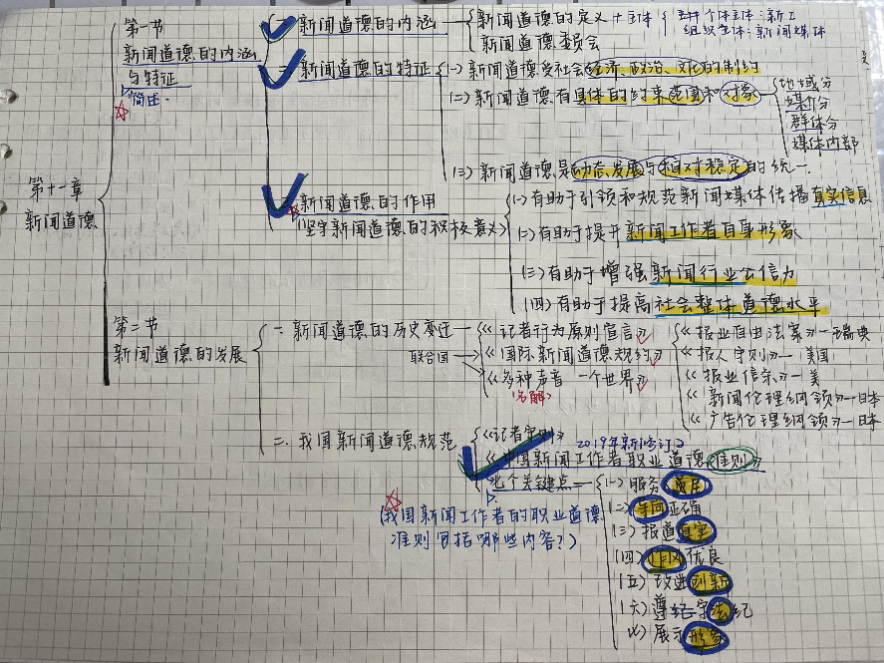 第十一章
新闻道德
第一节
新闻道德的内涵
与特征
简述.
一、新闻道德的内涵
新闻道德的定义 + 主体
个体主体:新工
组织主体:新闻媒体
新闻道德委员会
二、新闻道德的特征
(一)新闻道德受社会经济、政治、文化的制约
(二)新闻道德有具体的约束范围和对象
地域分
媒介分
群体分
媒体内部
(三)新闻道德是动态、发展与相对稳定的统一.
新闻道德的作用
(坚守新闻道德的积极意义)
(一)有助于引领和规范新闻媒体传播真实信息
(二)有助于提升新闻工作者自身形象
(三)有助于增强新闻行业公信力
(四)有助于提高社会整体道德水平
第二节
新闻道德的发展
一、新闻道德的历史变迁
《记者行为原则宣言》
联合国
《国际新闻道德规约》
《多种声音 一个世界》
(名解)
《报业自由法案》—瑞典
《报人守则》—美国
《报业信条》—美
《新闻伦理纲领》—日本
《广告伦理纲领》—日本
二、我国新闻道德规范
《记者守则》
2019年新修订
《中国新闻工作者职业道德准则》
七个关键点
(我国新闻工作者的职业道德
准则包括哪些内容?)
(一)服务
(二)导向正确
(三)报道真实
(四)作风优良
(五)改进创新
(六)遵纪守法纪
(七)展示形象